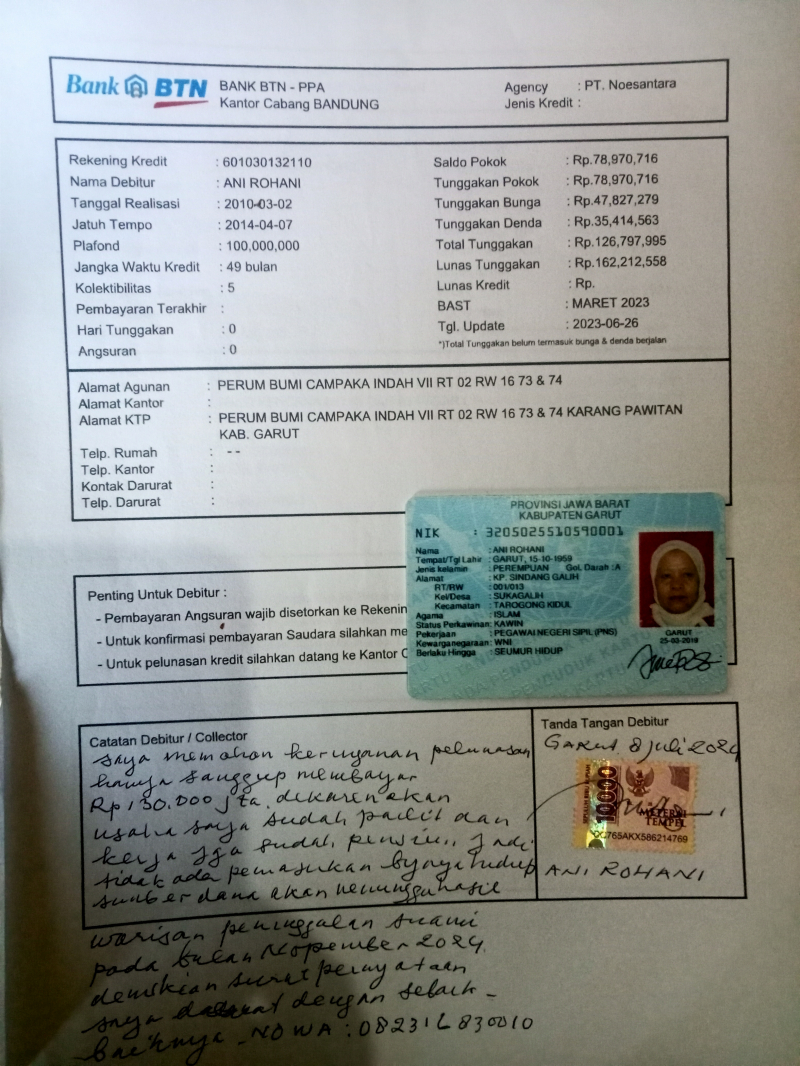 Bank BTN
BANK BTN - PPA
Kantor Cabang BANDUNG
Agency : PT. Noesantara
Jenis Kredit :
Rekening Kredit : 601030132110
Nama Debitur : ANI ROHANI
Tanggal Realisasi : 2010-03-02
Jatuh Tempo : 2014-04-07
Plafond : 100,000,000
Jangka Waktu Kredit : 49 bulan
Kolektibilitas : 5
Pembayaran Terakhir :
Hari Tunggakan : 0
Angsuran : 0
Saldo Pokok : Rp.78,970,716
Tunggakan Pokok : Rp.78,970,716
Tunggakan Bunga : Rp.47,827,279
Tunggakan Denda : Rp.35,414,563
Total Tunggakan : Rp.126,797,995
Lunas Tunggakan : Rp.162,212,558
Lunas Kredit : Rp.
BAST : MARET 2023
Tgl. Update : 2023-06-26
*)Total Tunggakan belum termasuk bunga & denda berjalan
Alamat Agunan : PERUM BUMI CAMPAKA INDAH VII RT 02 RW 16 73 & 74
Alamat Kantor :
Alamat KTP : PERUM BUMI CAMPAKA INDAH VII RT 02 RW 16 73 & 74 KARANG PAWITAN
KAB. GARUT
Telp. Rumah : --
Telp. Kantor :
Kontak Darurat :
Telp. Darurat :
PROVINSI JAWA BARAT
KABUPATEN GARUT
NIK : 3205025510590001
Nama : ANI ROHANI
Tempat/Tgl Lahir : GARUT, 15-10-1959
Jenis kelamin : PEREMPUAN Gol. Darah : A
Alamat : KP. SINDANG GALIH
RT/RW : 001/013
Kel/Desa : SUKAGALIH
Kecamatan : TAROGONG KIDUL
Agama : ISLAM
Status Perkawinan: KAWIN
Pekerjaan : PEGAWAI NEGERI SIPIL (PNS)
Kewarganegaraan: WNI
Berlaku Hingga : SEUMUR HIDUP
GARUT
Penting Untuk Debitur :
- Pembayaran Angsuran wajib disetorkan ke Rekenin
- Untuk konfirmasi pembayaran Saudara silahkan me
- Untuk pelunasan kredit silahkan datang ke Kantor C
Catatan Debitur / Collector
saya memohon keringanan pelunasan
hanya sanggup membayar
Rp 130.000 jta. dikarenakan
usaha saya sudah pailit dan
kerja jga sudah pensiun, jadi
tidak ada pemasukan byaya hidup
sumber dana akan menunggu hasil
warisan peninggalan suami
pada bulan Nopember 2024
demikian surat pernyataan
saya dengan sebaik-
baiknya - NO WA :
Tanda Tangan Debitur
Garut 8 Juli 2024
10000
METERAI
TEMPEL
765AKX586214769
ANI ROHANI